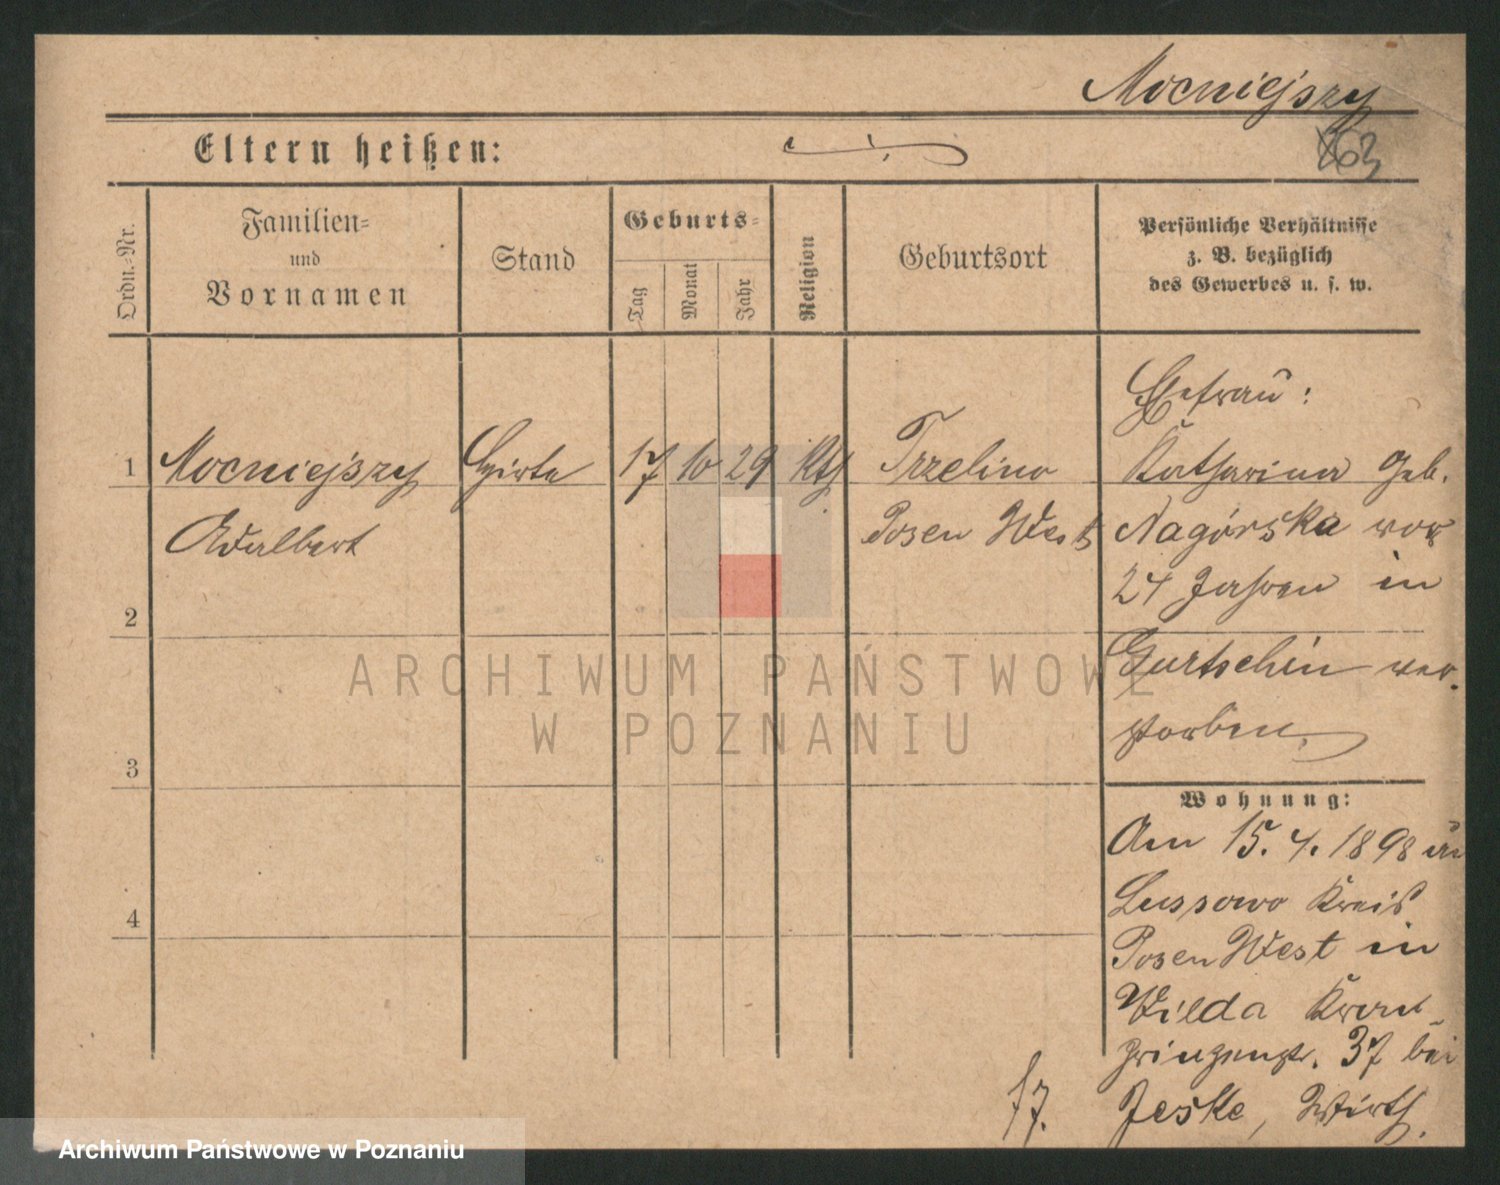 Mocniejszy
163
Eltern heißen:
Ordn.-Nr.
Familien-
und
Vornamen
Stand
Geburts-
Tag
Monat
Jahr
Religion
Geburtsort
Persönliche Verhältnisse
z. B. bezüglich
des Gewerbes u. s. w.
1 Mocniejszy
Adalbert
17 10 29 Kth
Trzelino
Posen West
Ehefrau:
Katharina geb.
Nagórska vor
24 Jahren in
Gurtschin ver-
storben.
2
3
4
Wohnung:
Am 15. 4. 1898 aus
Lussowo Kreis
Posen West in
Wilda Kron-
prinzenstr. 37 bei
Jeske, Wirth.
ARCHIWUM PAŃSTWOWE
W POZNANIU
Archiwum Państwowe w Poznaniu